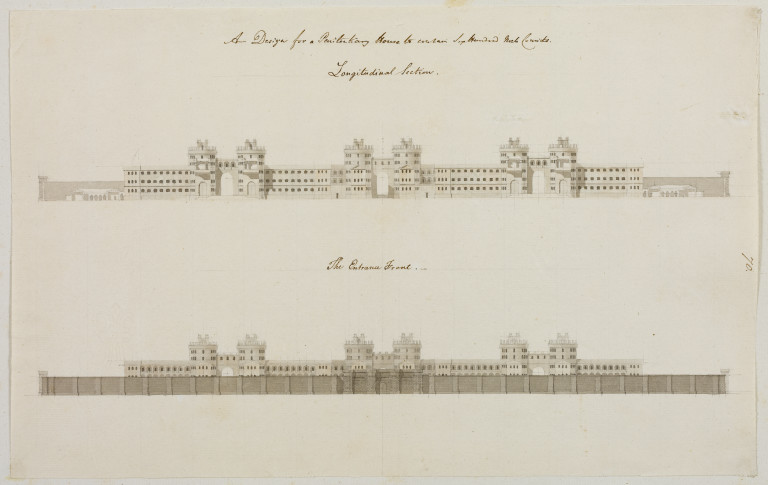 A Design for a Penitentiary House to contain Six Hundred Male Convicts.
Longitudinal Section.
The Entrance Front.